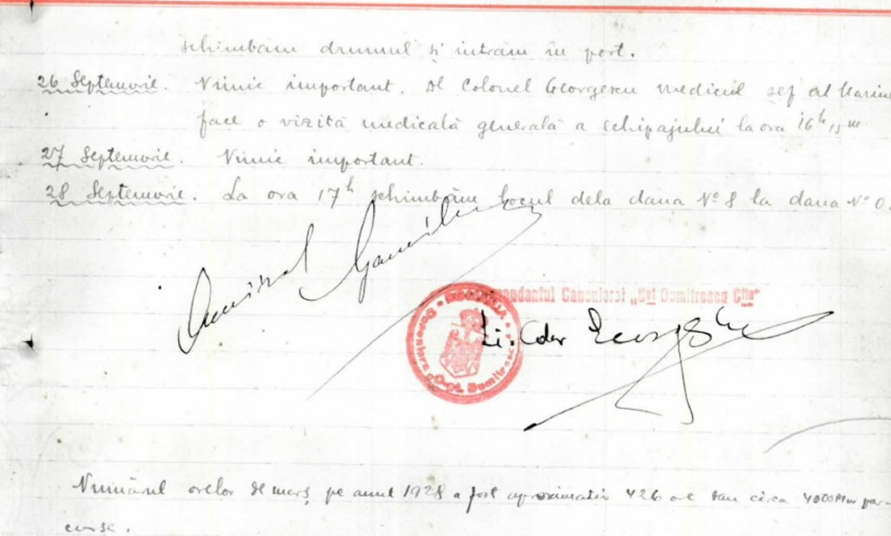 schimbăm drumul și intrăm în port.
26 Septemvrie. Nimic important. Dl Colonel Georgescu medicul șef al Marinei
face o vizită medicală generală a echipajului la ora 16h 15m
27 Septemvrie. Nimic important.
28 Septemvrie. La ora 17h schimbăm locul dela dana No 8 la dana No 0.
Comandantul Canonierei „Cpt Dumitrescu C-tin”
Lt. Cdor
Numărul orelor de marș pe anul 1928 a fost aproximativ 426 ore sau circa 4000 Mm par-
curse.